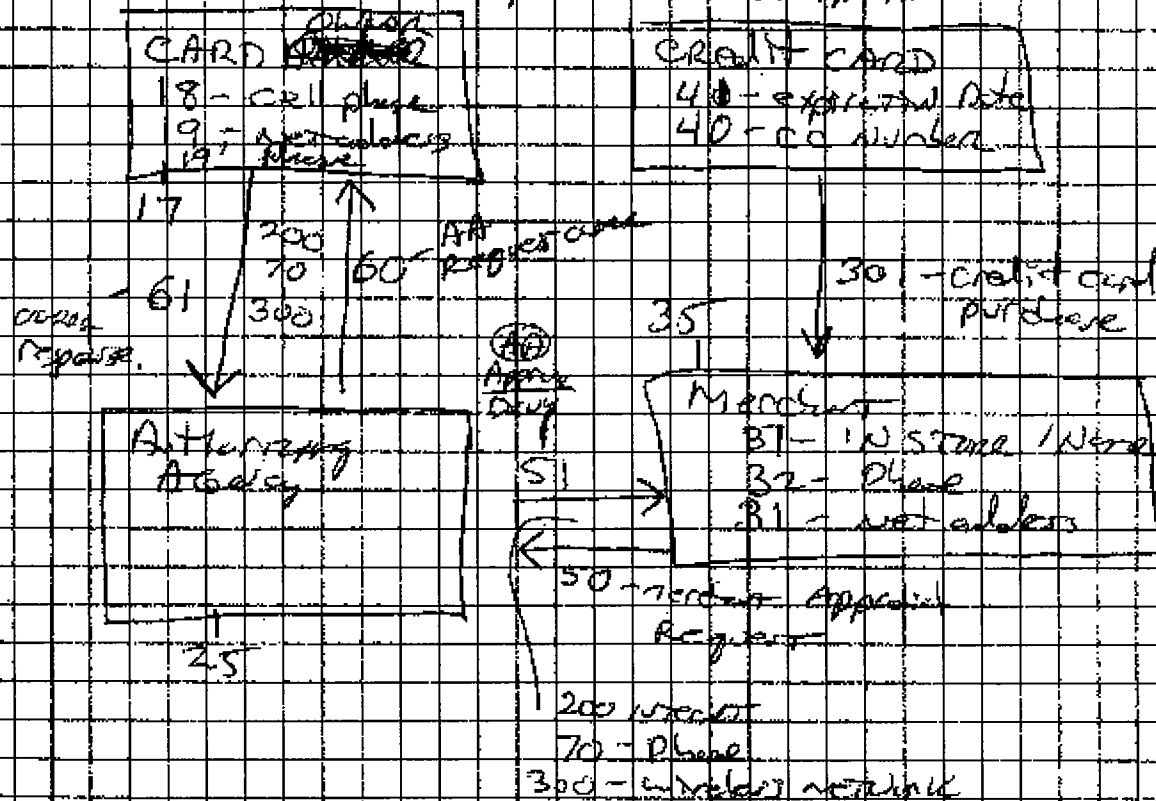 CARD owner
18 - cell phone
9 - net address
19 - phone
17
200
70
300
60 - AA
Request owner
- 61
owner
response.
CREdit CARD
41 - expiration Date
40 - CC Number
30 - credit card
purchase
35
AA
Approve
Deny
51
Authorizing
Agency
25
Merchant
37 - IN STORE / Name
32 - Phone
31 - net address
50 - merchant Approval
Request
200 internet
70 - Phone
300 - wireless network